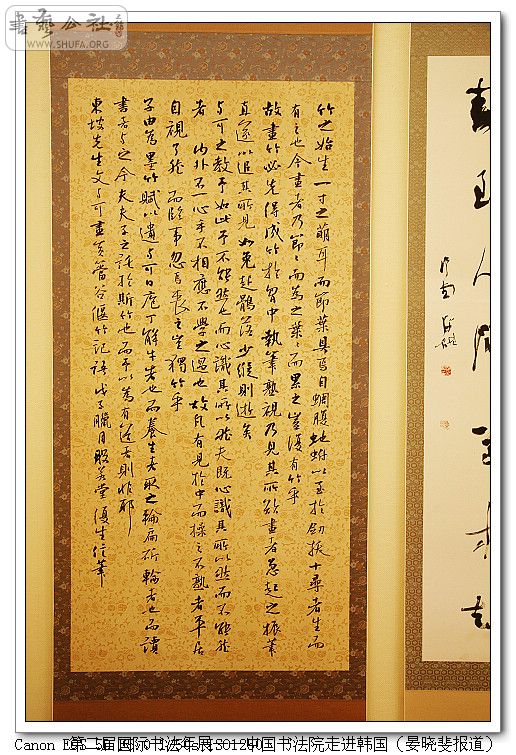 書藝公社
WWW.SHUFA.ORG
竹之始生一寸之萌耳而節葉具焉自蜩腹蛇蚹以至於劍拔十尋者生而
有之也今畫者乃節々而為之葉々而累之豈復有竹乎
故畫竹必先得成竹於胸中執筆熟視乃見其所欲畫者急起之振筆
直遂以追其所見如兔起鶻落少縱則逝矣
与可之教予如此予不能然也而心識其所以然夫既心識其所以然而不能然
者內外不一心手不相應不學之過也故凡有見於中而操之不熟者平居
自視了然而臨事忽焉喪之豈獨竹乎
子由為墨竹賦以遺与可曰庖丁解牛者也而養生者取之輪扁斫輪者也而讀
書者与之今夫夫子之託於斯竹也而予以為有道者則非耶
東坡先生文与可畫篔簹谷偃竹記語戊子臘月般若堂復生信筆
Canon EOS 5D 第二届国际书法年展 ISO1250 中国书法院走进韩国（晏晓斐报道）